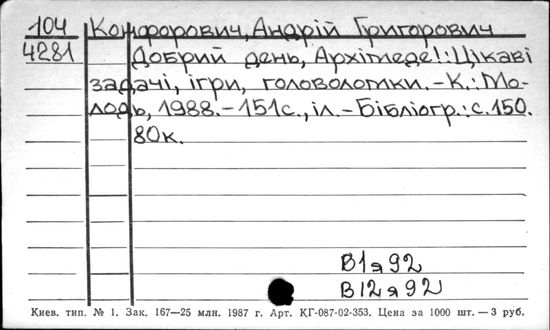 104 Конфорович, Андрій Григорович
4281 Добрий день, Архімеде!: Цікаві
задачі, ігри, головоломки. – К.: Мо-
лодь, 1988. – 151с., іл. – Бібліогр.: с. 150.
80к.
В1я92
В12я92
Киев. тип. № 1. Зак. 167—25 млн. 1987 г. Арт. КГ-087-02-353. Цена за 1000 шт. — 3 руб.